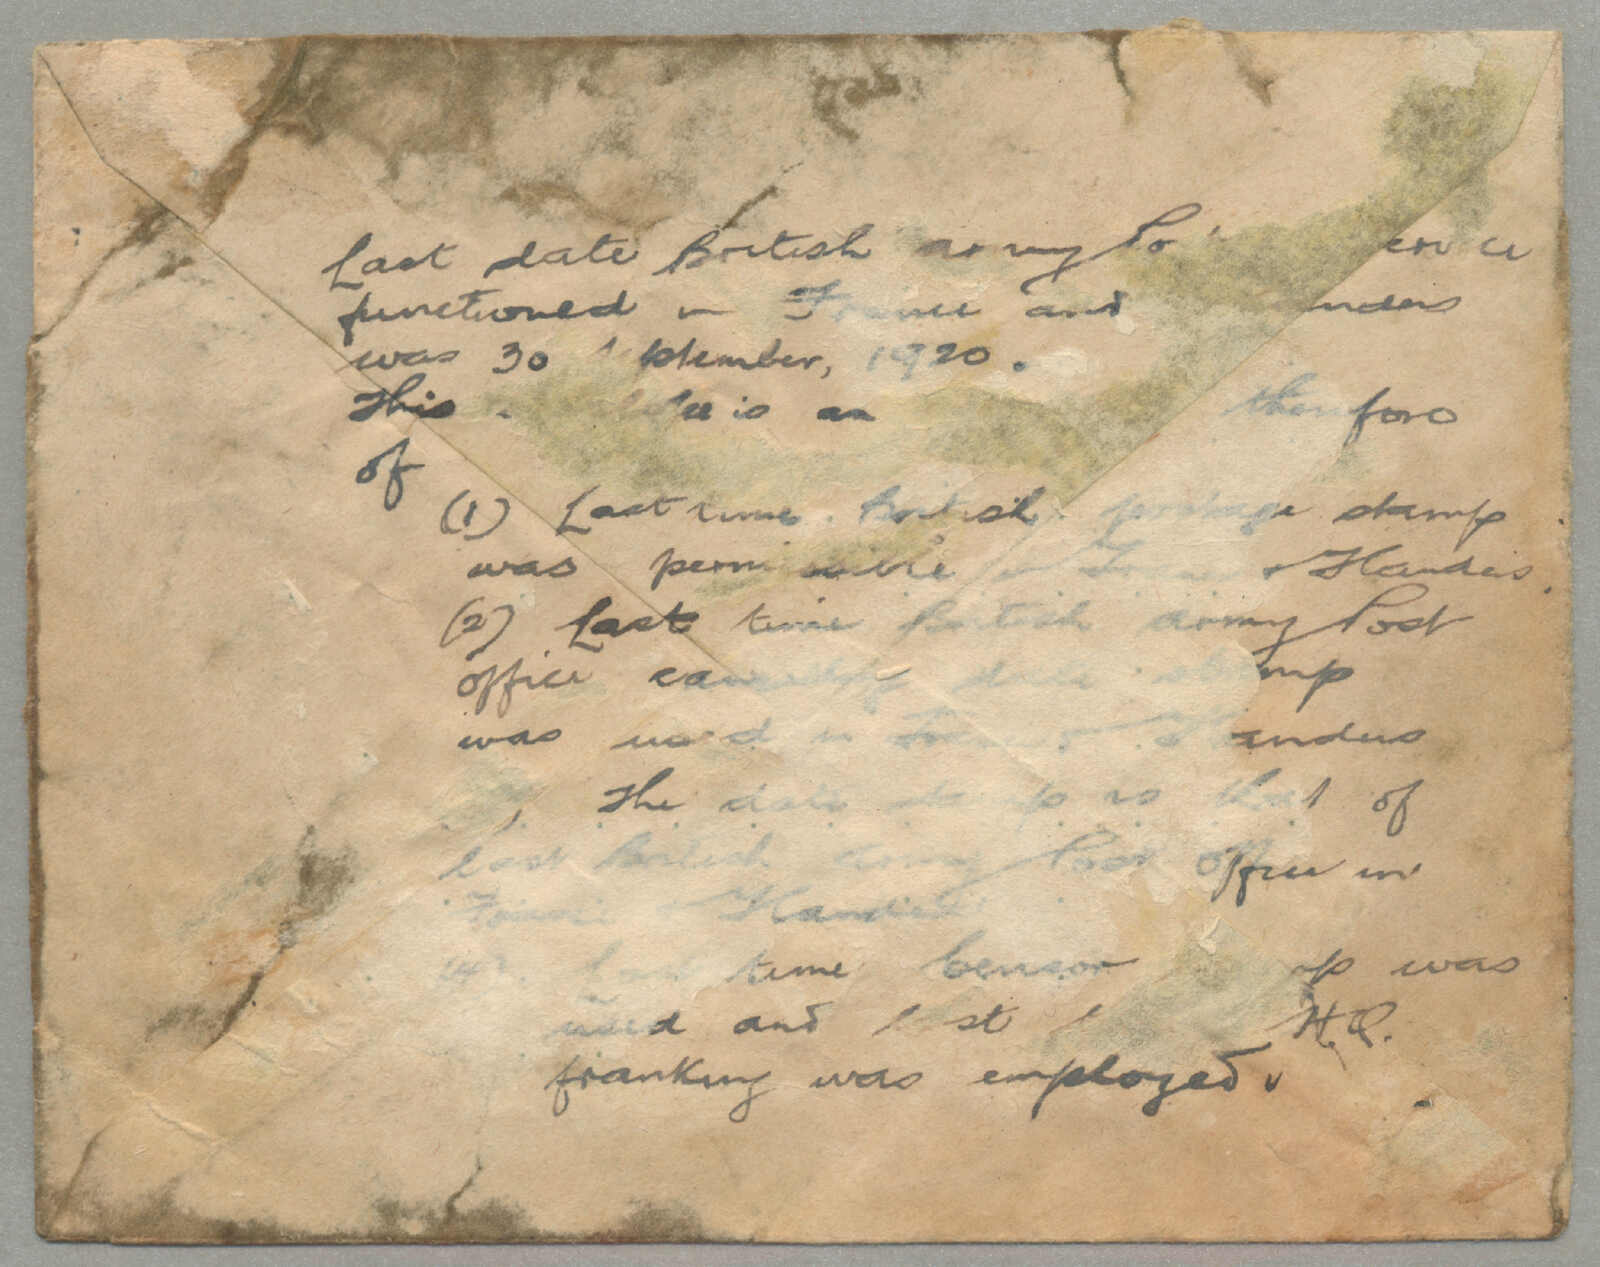 Last date British army Po ervice
functioned in France and anders
was 30 September, 1920.
This is an therefore
of
(1) Last time British postage stamp
was permissible in France & Flanders.
(2) Last time British army Post
office date stamp
was used in France & Flanders
The date stamp is that of
last British Army Post Office in
France & Flanders
(4) Last time Censor was
used and last H.Q.
franking was employed.